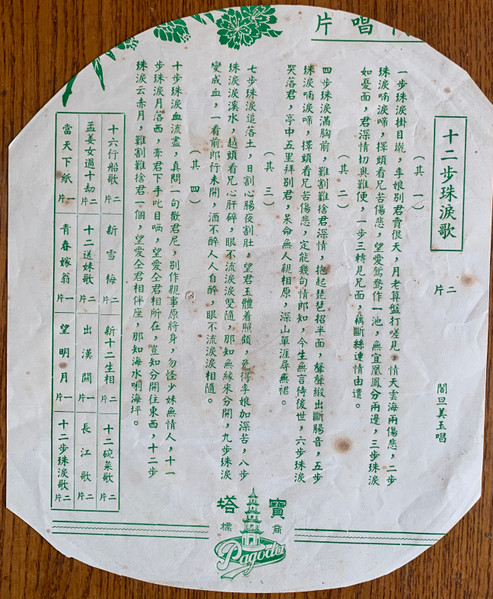 唱片
十二步珠淚歌
二片
閣旦美玉唱
一步珠淚掛目墘，李娘別君實很天，月老算盤打嗟見，情天雲海兩傷悲，二步
珠淚喃淚啼，擇頭看兄苦傷悲，望愛鴛鴦作一池，無宜凰鳳分兩邊，三步珠淚
如憂面，君深情切與難便，一步三轉見兄面，藕斷絲連情由還。
（其二）
四步珠淚滿胸前，難割難捨君深情，抱起琵琶招半面，聲聲緞出斷腸音，五步
珠淚喃淚啼，擇頭看兄苦傷悲，定能幾句情郎如，今生無言待後世，六步珠淚
哭落君，亭中五里拜別君，呆命無人親相原，深山單涯尋無裙。
（其三）
七步珠淚這落土，日割心腸夜割肚，望君玉體着照顧，免得李娘加深苦，八步
珠淚淚溪水，越頭看兄心肝碎，眼不流淚淚墜隨，那如無緣來分開，九步珠淚
變成血，一看前郎行未開，酒不醉人人自醉，眼不流淚淚相隨。
（其四）
十步珠淚血流盡，真問一句歡君尼，別作親事原府身，勿怪少妹無情人，十一
步珠淚月落西，牽君下手叱目哂，望愛仝君相所在，豈知分開往東西，十二步
珠淚云赤月，難割難捨君一個，望愛仝君相伴座，那如海水明海坪。
十六行船歌 二片
新雪梅 二片
新十二生相 二片
十二碗菜歌 二片
孟姜女過十劫 二片
十二送妹歌 二片
出漢關 一片
長江歌 二片
當天下紙 一片
青春嫁翁 一片
望明月 一片
十二步珠淚歌 二片
寶塔
商標
Pagoda